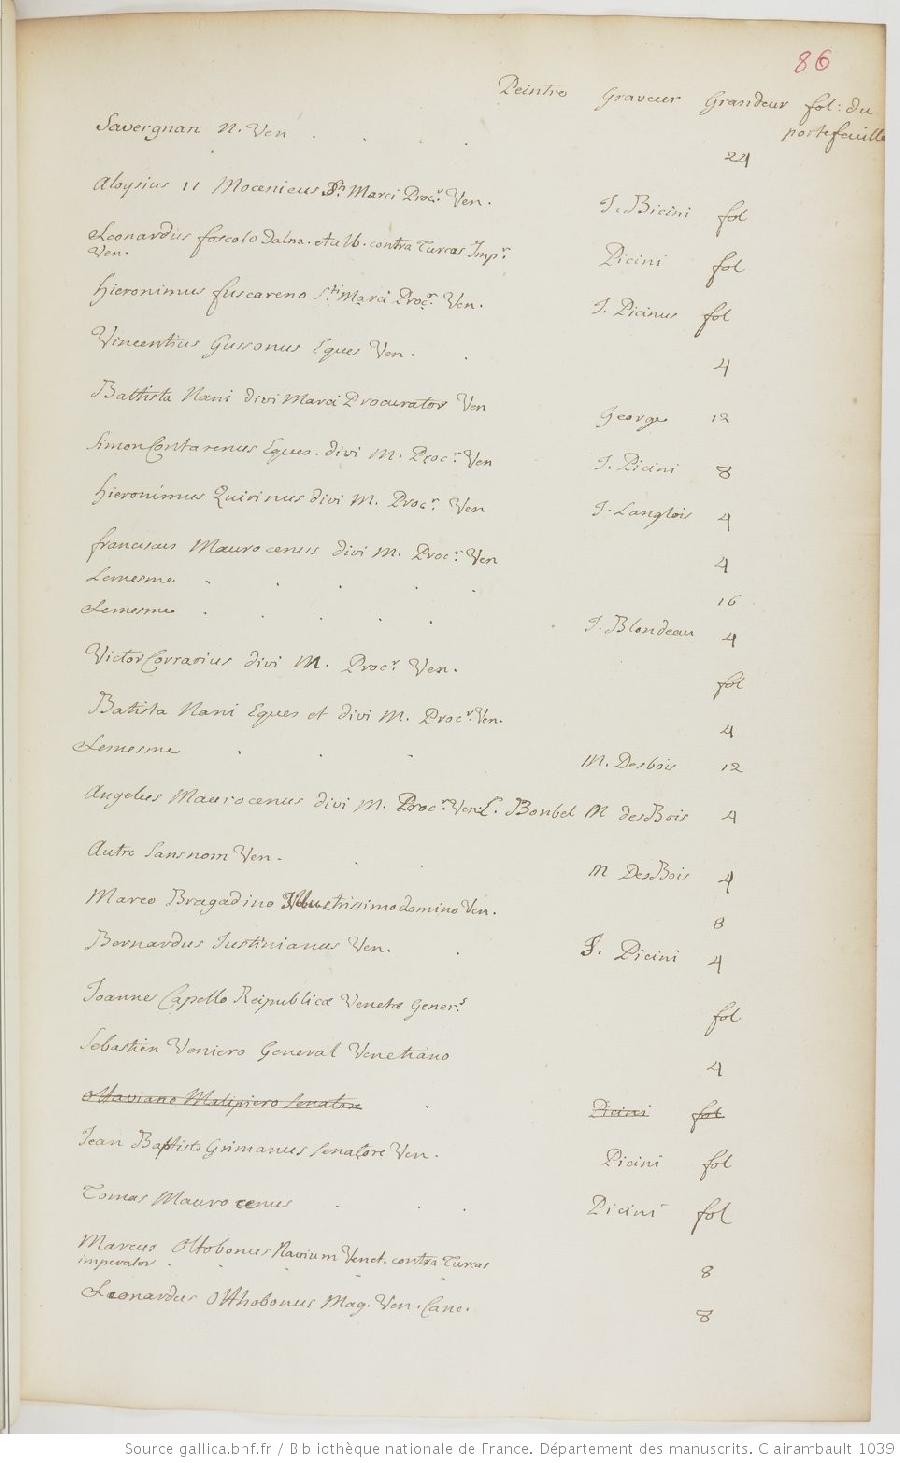 86
Peintre Graveur Grandeur fol: du
portefeuille
Savergnan N. Ven 24
Aloysius 11 Mocenicus Sn. Marci Procr. Ven. J. Bicini fol
Leonardus foscolo Dalma. et alb. contra Turcas Impr. Picini fol
Ven.
hieronimus fuscareno Sti Marci Procr. Ven. J. Picinus fol
Vincentius Gussonus Eques Ven. 4
Battista Nani divi Marci Procurator Ven George 12
Simon Contarenus Eques. divi M. Procr. Ven J. Picini 8
hieronimus Quirinus divi M. Procr. Ven J. Langlois 4
franciscus Maurocenus divi M. Procr. Ven 4
Lemesme 16
Lemesme J. Blondeau 4
Victor Corrarius divi M. Procr Ven. fol
Batista Nani Eques et divi M. Procr. Ven. 4
Lemesme M. Desbois 12
Angelus Maurocenus divi M. Procr. Ven L. Bonbel M des Bois 4
Autre sans nom Ven. M Des Bois 4
Marco Bragadino Illustrissimo domino Ven. 8
Bernardus Iustinianus Ven. J. Picini 4
Joannes Capello Reipublicæ Venetæ Geners fol
Sebastien Veniero General Venetiano 4
Ottaviano Malipiero Senatre Picini fol
Jean Baptista Grimanus Senatore Ven. Picini fol
Tomas Maurocenus Picini fol
Marcus Ottobonus Navium Venet. contra Turcas
imperator 8
Leonardus Otthobonus Mag. Ven. Canc. 8
Source gallica.bnf.fr / Bibliothèque nationale de France. Département des manuscrits. Clairambault 1039